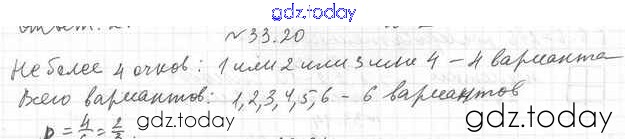 gdz.today
ответ: 2.
№33.20
Не более 4 очков: 1 или 2 или 3 или 4 – 4 варианта
Всего вариантов: 1,2,3,4,5,6 – 6 вариантов
P = 4/6 = 2/3.
gdz.today gdz.today